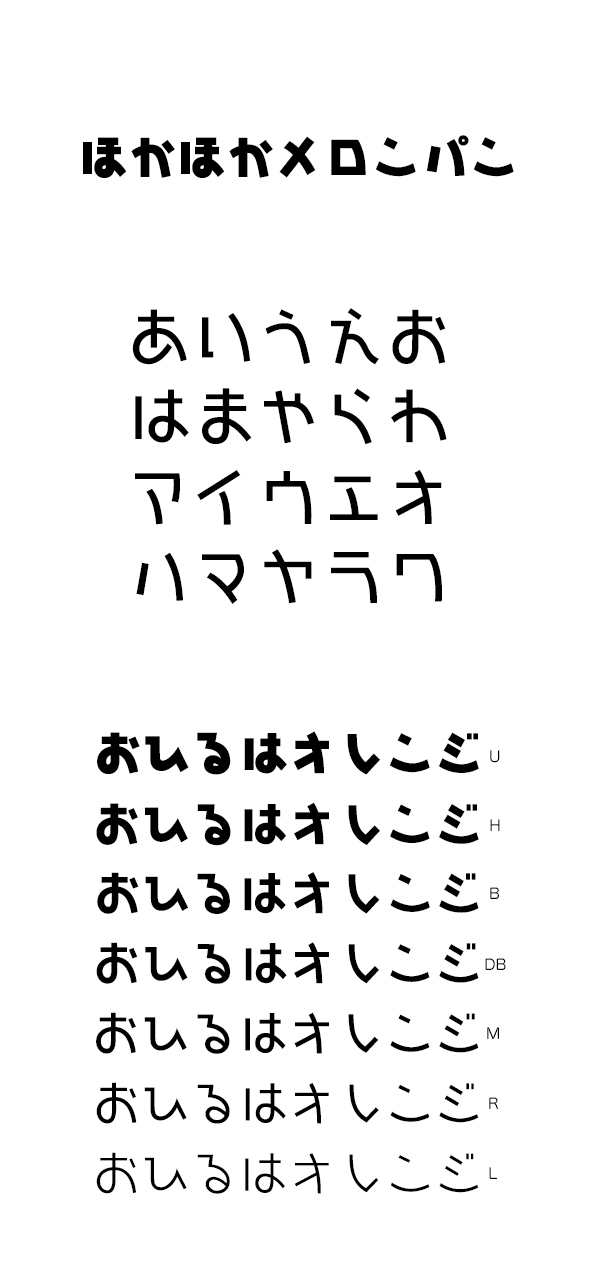 ほかほかメロンパン
あいうえお
はまやらわ
アイウエオ
ハマヤラワ
おひるはオレンジ U
おひるはオレンジ H
おひるはオレンジ B
おひるはオレンジ DB
おひるはオレンジ M
おひるはオレンジ R
おひるはオレンジ L